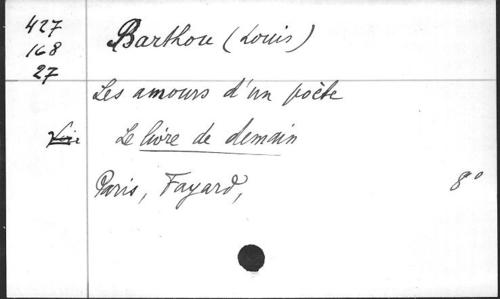 427
168
27
Barthou (Louis)
Les amours d'un poète
Voir Le livre de demain
Paris, Fayard, 8°